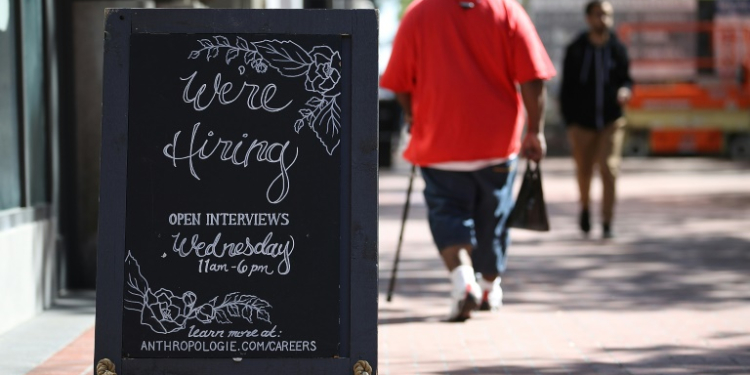 We're
Hiring
OPEN INTERVIEWS
Wednesday
11am-6pm
learn more at:
ANTHROPOLOGIE.COM/CAREERS